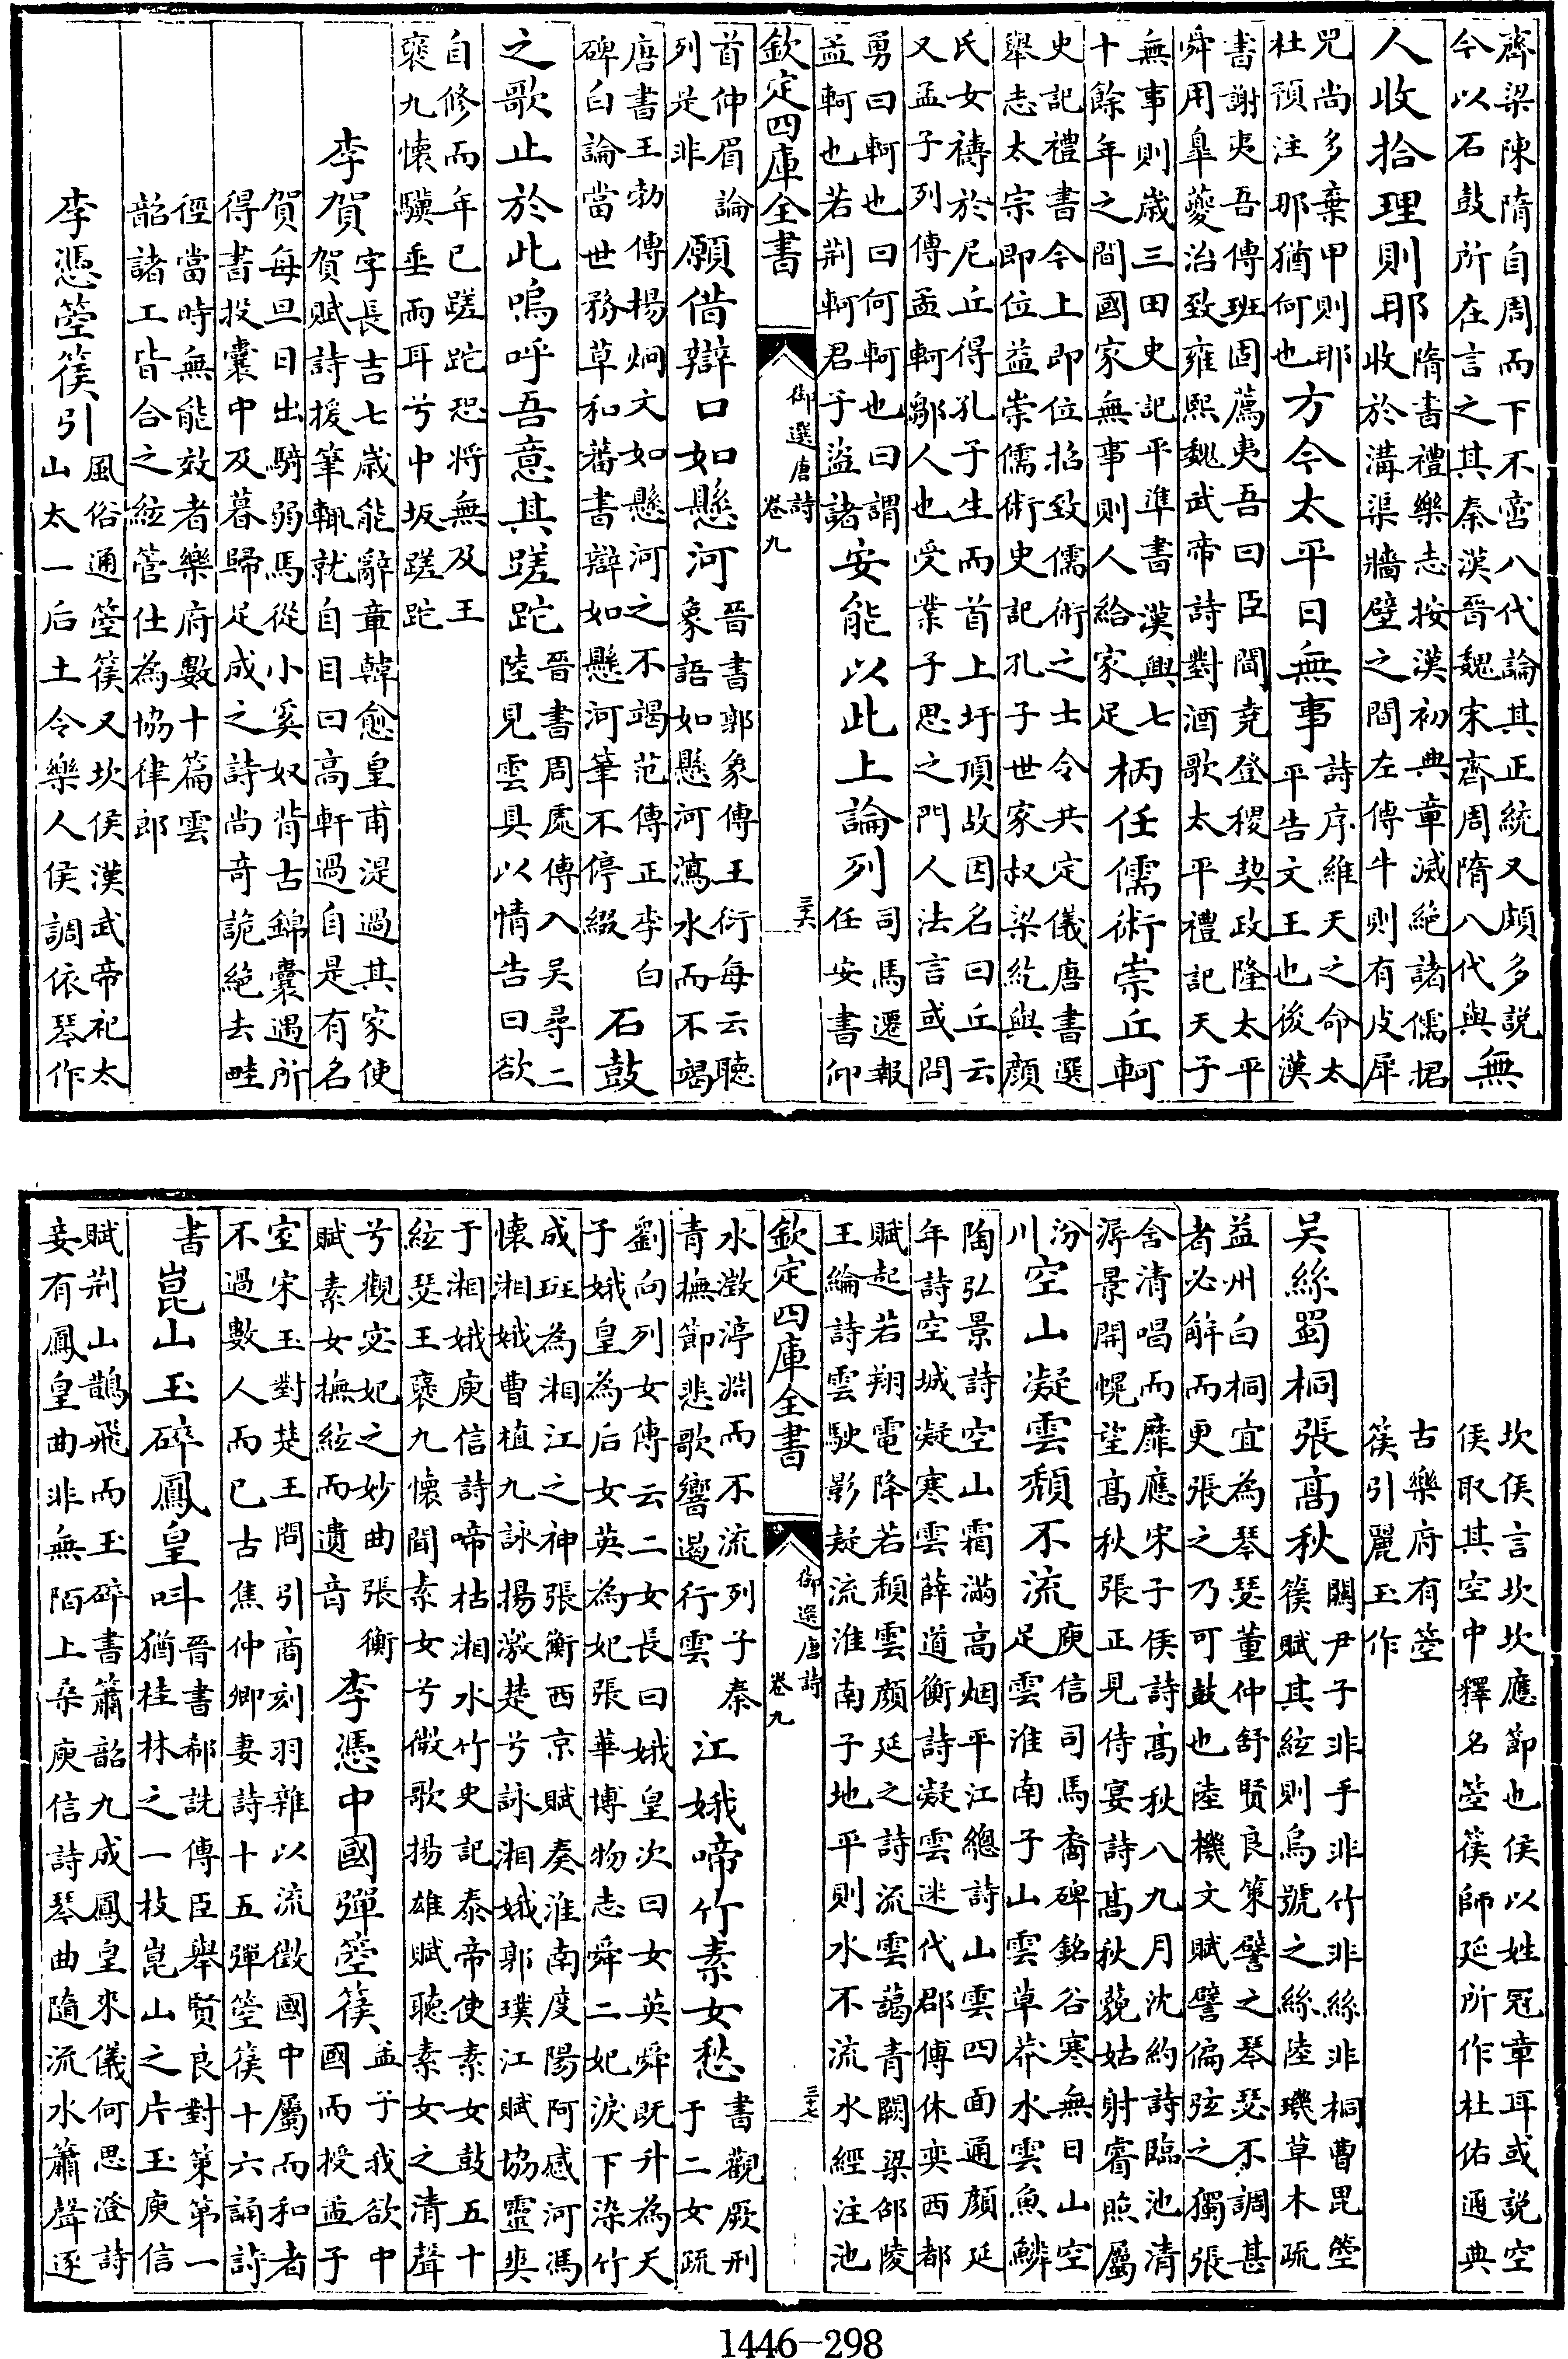 齊梁陳隋自周而下不啻八代論其正統又頗多説
今以石鼓所在言之其秦漢晉魏宋齊周隋八代與
無
人收拾理則那
隋書禮樂志按漢初典章滅絕諸儒捃
收於溝渠牆壁之間左傳牛則有皮犀
兕尚多棄甲則那
杜預注那猶何也
方今太平日無事
詩序維天之命太
平告文王也後漢
書謝夷吾傳班固薦夷吾曰臣聞堯登稷契政隆太平
舜用臯夔治致雍熙魏武帝詩對酒歌太平禮記天子
無事則歲三田史記平準書漢興七
十餘年之間國家無事則人給家足
柄任儒術崇丘軻
史記禮書今上即位招致儒術之士令共定儀唐書選
舉志太宗即位益崇儒術史記孔子世家叔梁紇與顏
氏女禱於尼丘得孔子生而首上圩頂故因名曰丘云
又孟子列傳孟軻鄒人也受業子思之門人法言或問
勇曰軻也曰何軻也曰謂
孟軻也若荆軻君子盜諸
安能以此上論列
司馬遷報
任安書仰
欽定四庫全書
御選唐詩
卷九
三十六
首伸眉論
列是非
願借辯口如懸河
晉書郭象傳王衍每云聽
象語如懸河瀉水而不竭
唐書王勃傳楊炯文如懸河之不竭范傳正李白
碑白論當世務草和蕃書辯如懸河筆不停綴
石鼓
之歌止於此嗚呼吾意其蹉跎
晉書周處傳入吳尋二
陸見雲具以情告曰欲
自修而年已蹉跎恐將無及王
褒九懷驥垂兩耳兮中坂蹉跎
李賀
字長吉七歲能辭章韓愈皇甫湜過其家使
賀賦詩援筆輒就自目曰高軒過自是有名
賀每旦日出騎弱馬從小奚奴背古錦囊遇所
得書投囊中及暮歸足成之詩尚奇詭絕去畦
徑當時無能效者樂府數十篇雲
韶諸工皆合之絃管仕為協律郎
李憑箜篌引
風俗通箜篌又坎侯漢武帝祀太
山太一后土令樂人侯調依琴作
坎侯言坎坎應節也侯以姓冠章耳或説空
侯取其空中釋名箜篌師延所作杜佑通典
古樂府有箜
篌引麗玉作
吳絲蜀桐張高秋
關尹子非手非竹非絲非桐曹毘箜
篌賦其絃則烏號之絲陸璣草木疏
益州白桐宜為琴瑟董仲舒賢良策譬之琴瑟不調甚
者必解而更張之乃可鼓也陸機文賦譬偏弦之獨張
含清唱而靡應宋子侯詩高秋八九月沈約詩臨池清
溽景開幌望高秋張正見侍宴詩高秋藐姑射睿照屬
汾
川
空山凝雲頹不流
庾信司馬裔碑銘谷寒無日山空
足雲淮南子山雲草莽水雲魚鱗
陶弘景詩空山霜滿高烟平江總詩山雲四面通顏延
年詩空城凝寒雲薛道衡詩凝雲迷代郡傅休奕西都
賦起若翔電降若頹雲顏延之詩流雲藹青闕梁邵陵
王綸詩雲駛影疑流淮南子地平則水不流水經注池
欽定四庫全書
御選唐詩
卷九
三十七
水澂渟淵而不流列子秦
青撫節悲歌響遏行雲
江娥啼竹素女愁
書觀厥刑
于二女疏
劉向列女傳云二女長曰娥皇次曰女英舜既升為天
子娥皇為后女英為妃張華博物志舜二妃淚下染竹
成斑為湘江之神張衡西京賦奏淮南度陽阿感河馮
懷湘娥曹植九詠揚激楚兮詠湘娥郭璞江賦協靈爽
于湘娥庾信詩啼枯湘水竹史記泰帝使素女鼓五十
絃瑟王褒九懷聞素女兮微歌揚雄賦聽素女之清聲
兮觀宓妃之妙曲張衡
賦素女撫絃而遺音
李憑中國彈箜篌
孟子我欲中
國而授孟子
室宋玉對楚王問引商刻羽雜以流徵國中屬而和者
不過數人而已古焦仲卿妻詩十五彈箜篌十六誦詩
書
崑山玉碎鳳皇叫
晉書郤詵傳臣舉賢良對策第一
猶桂林之一枝崑山之片玉庾信
賦荆山鵲飛而玉碎書簫韶九成鳳皇來儀何思澄詩
妾有鳳皇曲非無陌上桑庾信詩琴曲隨流水簫聲逐
1446-298